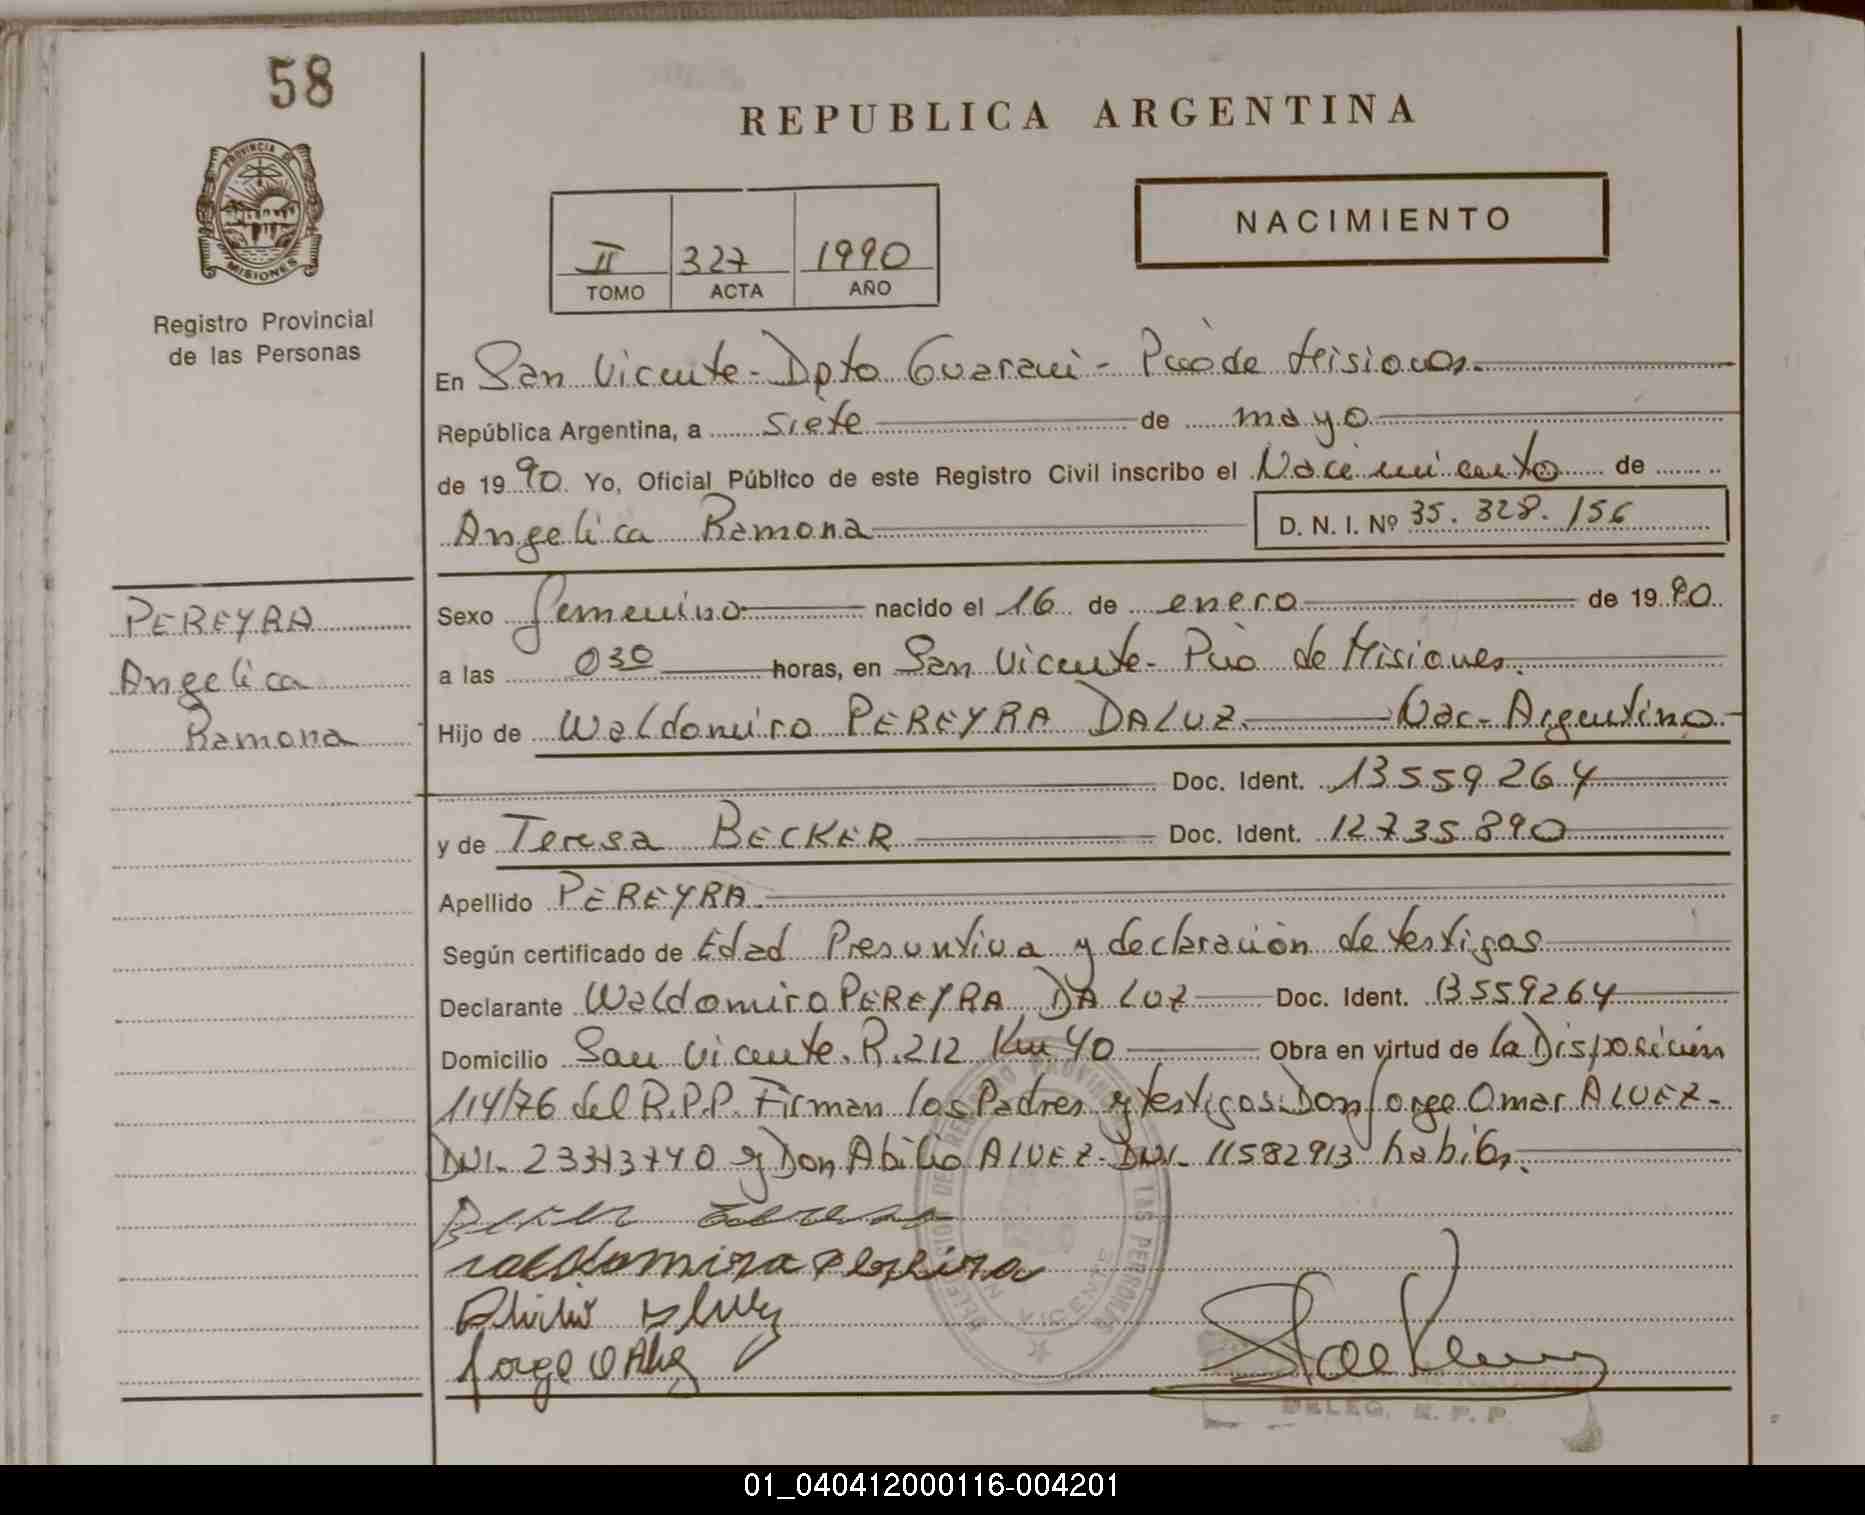 58
REPUBLICA ARGENTINA
PROVINCIA DE
MISIONES
Registro Provincial
de las Personas
II 327 1990
TOMO ACTA AÑO
NACIMIENTO
En San Vicente - Dpto Guarani - Pcia de Misiones.
República Argentina, a siete de mayo
de 1990. Yo, Oficial Público de este Registro Civil inscribo el Nacimiento de
Angelica Ramona
D. N. I. Nº 35.328.156
PEREYRA
Angelica
Ramona
Sexo femenino nacido el 16 de enero de 1990.
a las 030 horas, en San Vicente - Pcia de Misiones.
Hijo de Waldomiro PEREYRA DALUZ. Nac. Argentino.
Doc. Ident. 13559264
y de Teresa BECKER Doc. Ident. 12735890
Apellido PEREYRA.
Según certificado de Edad Presuntiva y declaración de testigos
Declarante Waldomiro PEREYRA DA LUZ Doc. Ident. 13559264
Domicilio San Vicente. R. 212 Km 40 Obra en virtud de la Disposición
114/76 del R.P.P. Firman los Padres y testigos Don Jorge Omar ALVEZ-
DNI. y Don Abilio ALVEZ- DNI. 11582913
Jorge O Alvez
DELEG. R. P. P.
01_040412000116-004201